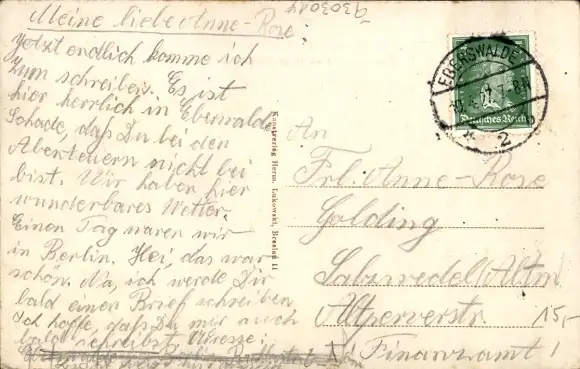 930301
Meine liebe Anne-Rose!
Jetzt endlich komme ich
zum schreiben. Es ist
hier herrlich in Eberwalde
Schade, daß Du bei den
Abenteuern nicht bei
bist. Wir haben hier
wunderbares Wetter.
Einen Tag waren wir
in Berlin. Hei, das war
schön. Na, ich werde Dir
bald einen Brief schreiben
Ich hoffe, daß Du mir auch
bald schreibst. Adresse:
Kunstverlag Herm. Lukowski, Breslau II
EBERSWALDE
2
Deutsches Reich
An
Frl. Anne-Rose
Golding
Salzwedel (Altm.
Altperverstr.
Finanzamt!
15,-